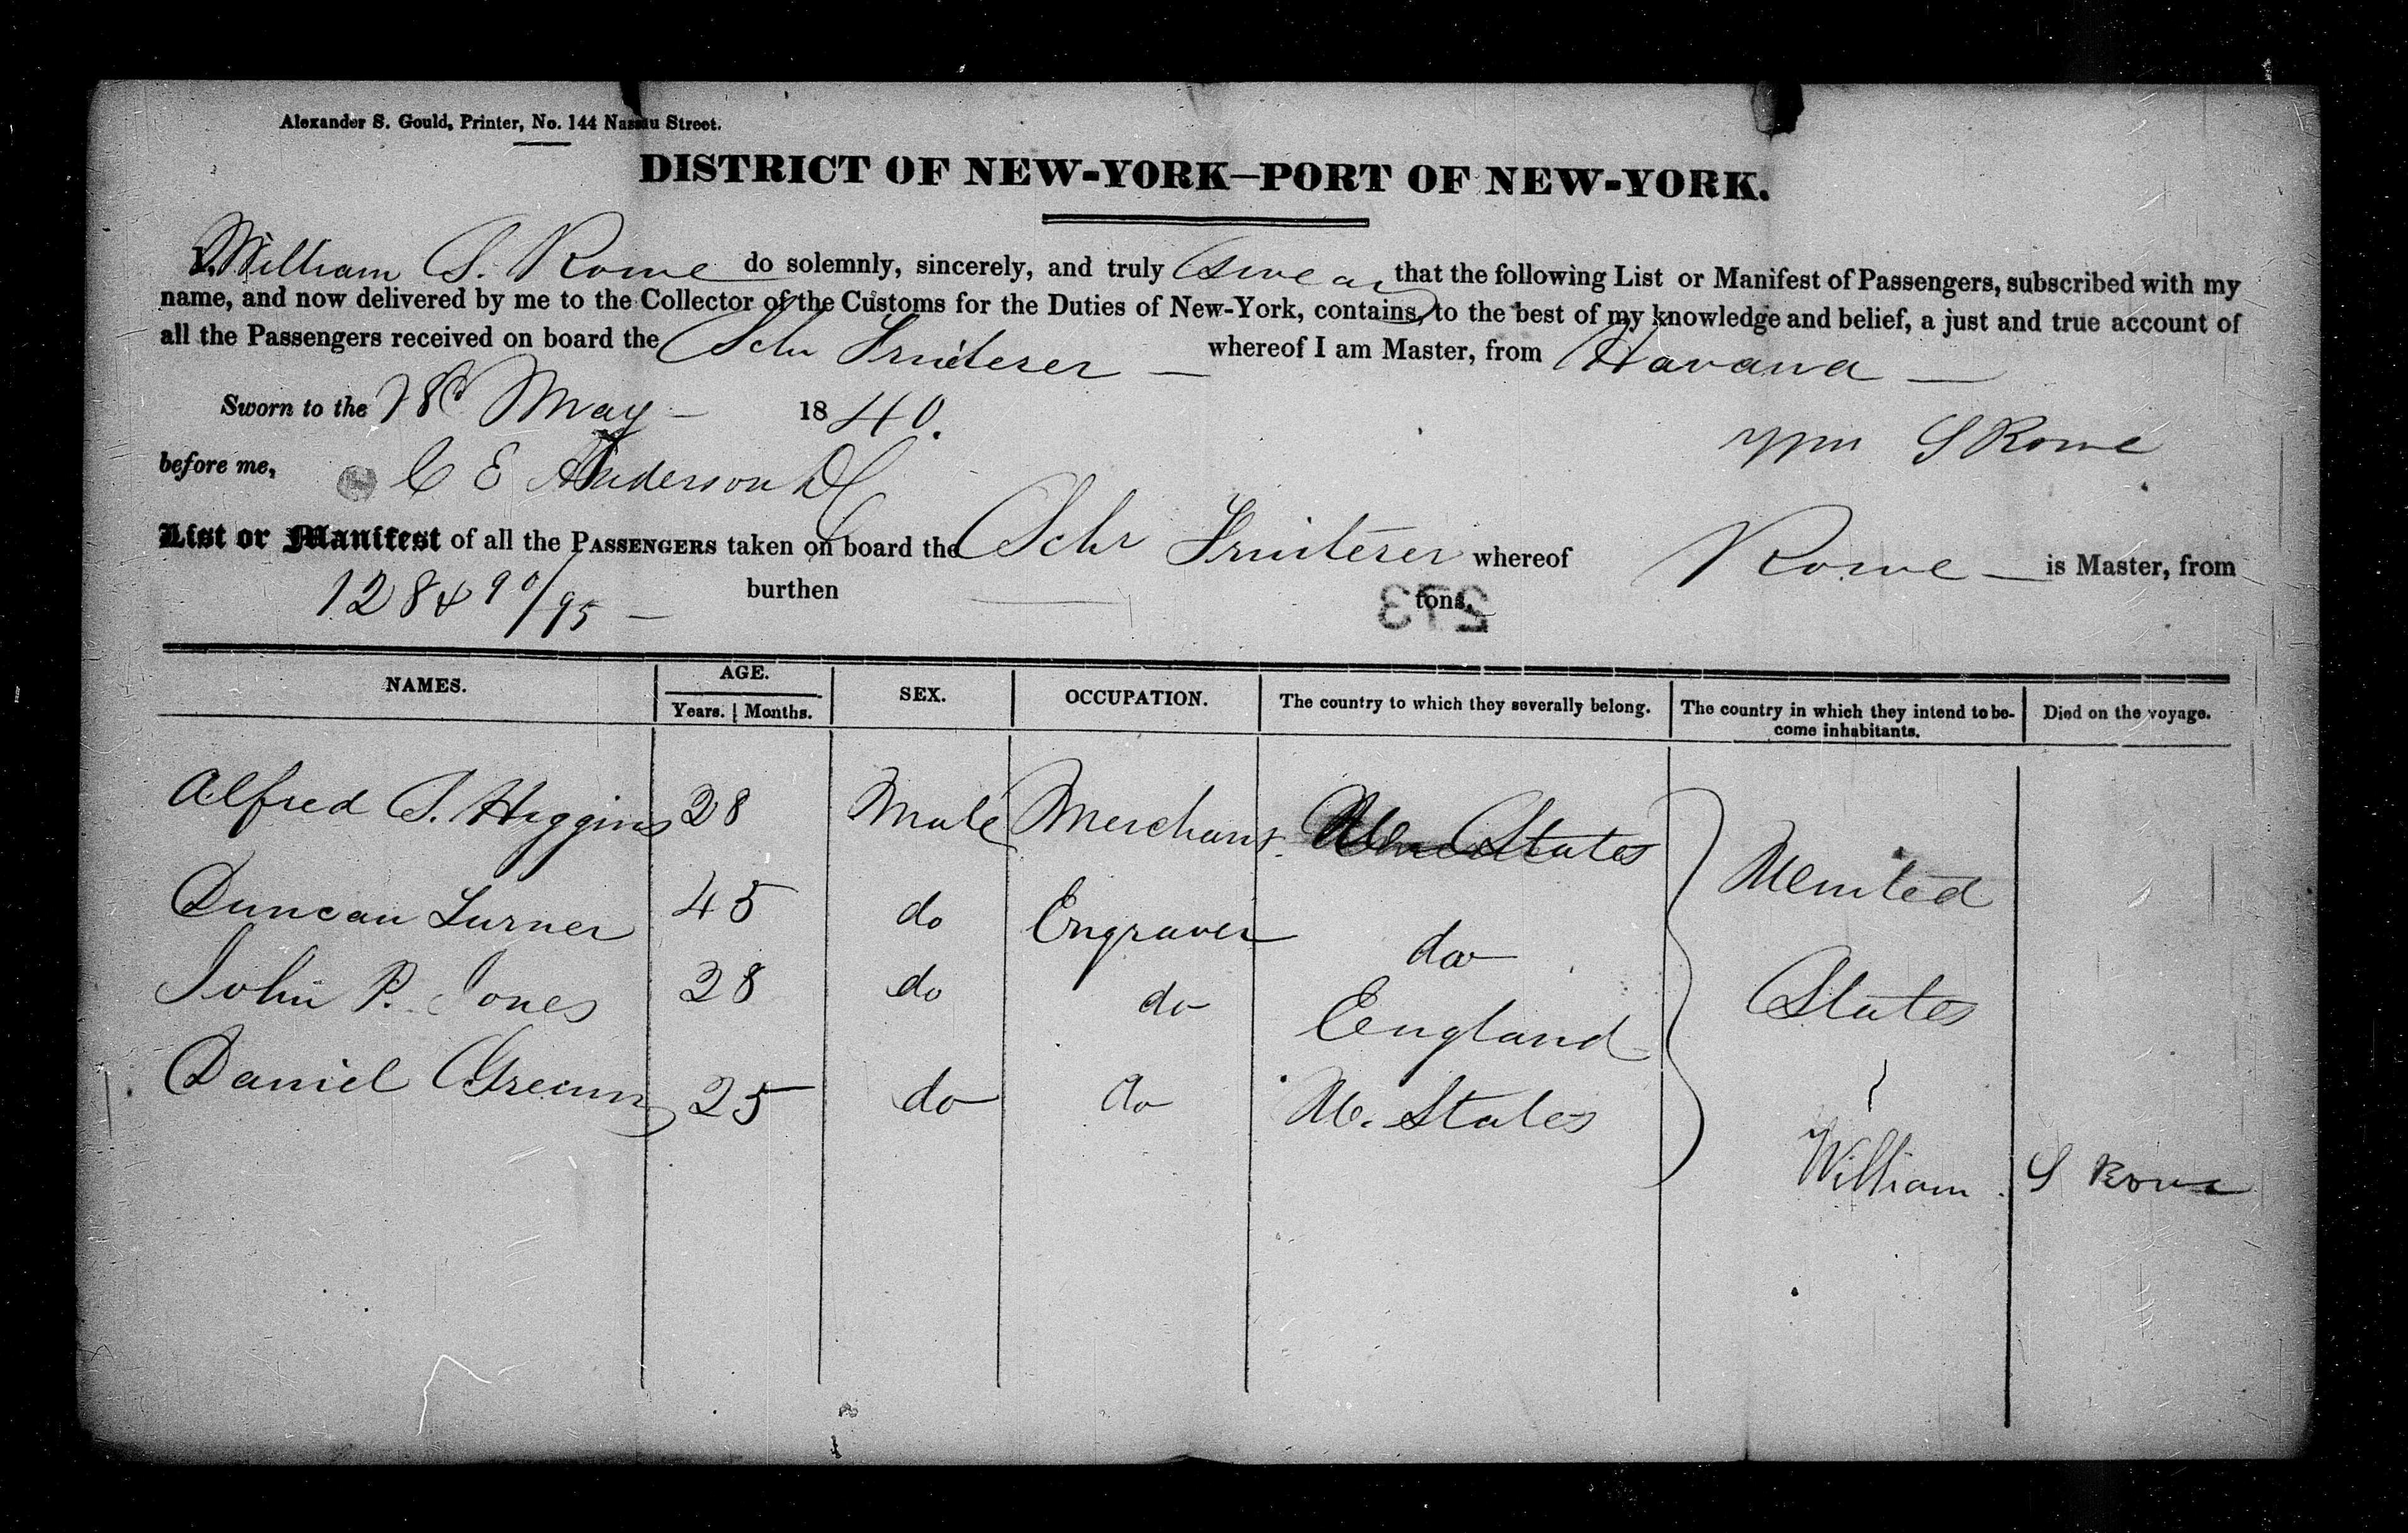 Alexander S. Gould, Printer, No. 144 Nassau Street.
DISTRICT OF NEW-YORK—PORT OF NEW-YORK.
I, William S. Rowe do solemnly, sincerely, and truly swear that the following List or Manifest of Passengers, subscribed with my
name, and now delivered by me to the Collector of the Customs for the Duties of New-York, contains, to the best of my knowledge and belief, a just and true account of
all the Passengers received on board the Schr Fruiterer — whereof I am Master, from Havana —
Sworn to the 28 May — 1840.
Wm S Rowe
before me, C E Anderson DC
List or Manifest of all the PASSENGERS taken on board the Schr Fruiterer whereof Rowe — is Master, from
128 & 90/95 — burthen — tons.
513
NAMES. AGE. SEX. OCCUPATION. The country to which they severally belong. The country in which they intend to be- Died on the voyage.
Years. Months. come inhabitants.
Alfred S. Higgins 28 Male Merchant States
United
Duncan Turner 45 do Engraver do
John P. Jones 28 do do England
States
Daniel Green 25 do do U. States
William S Rowe